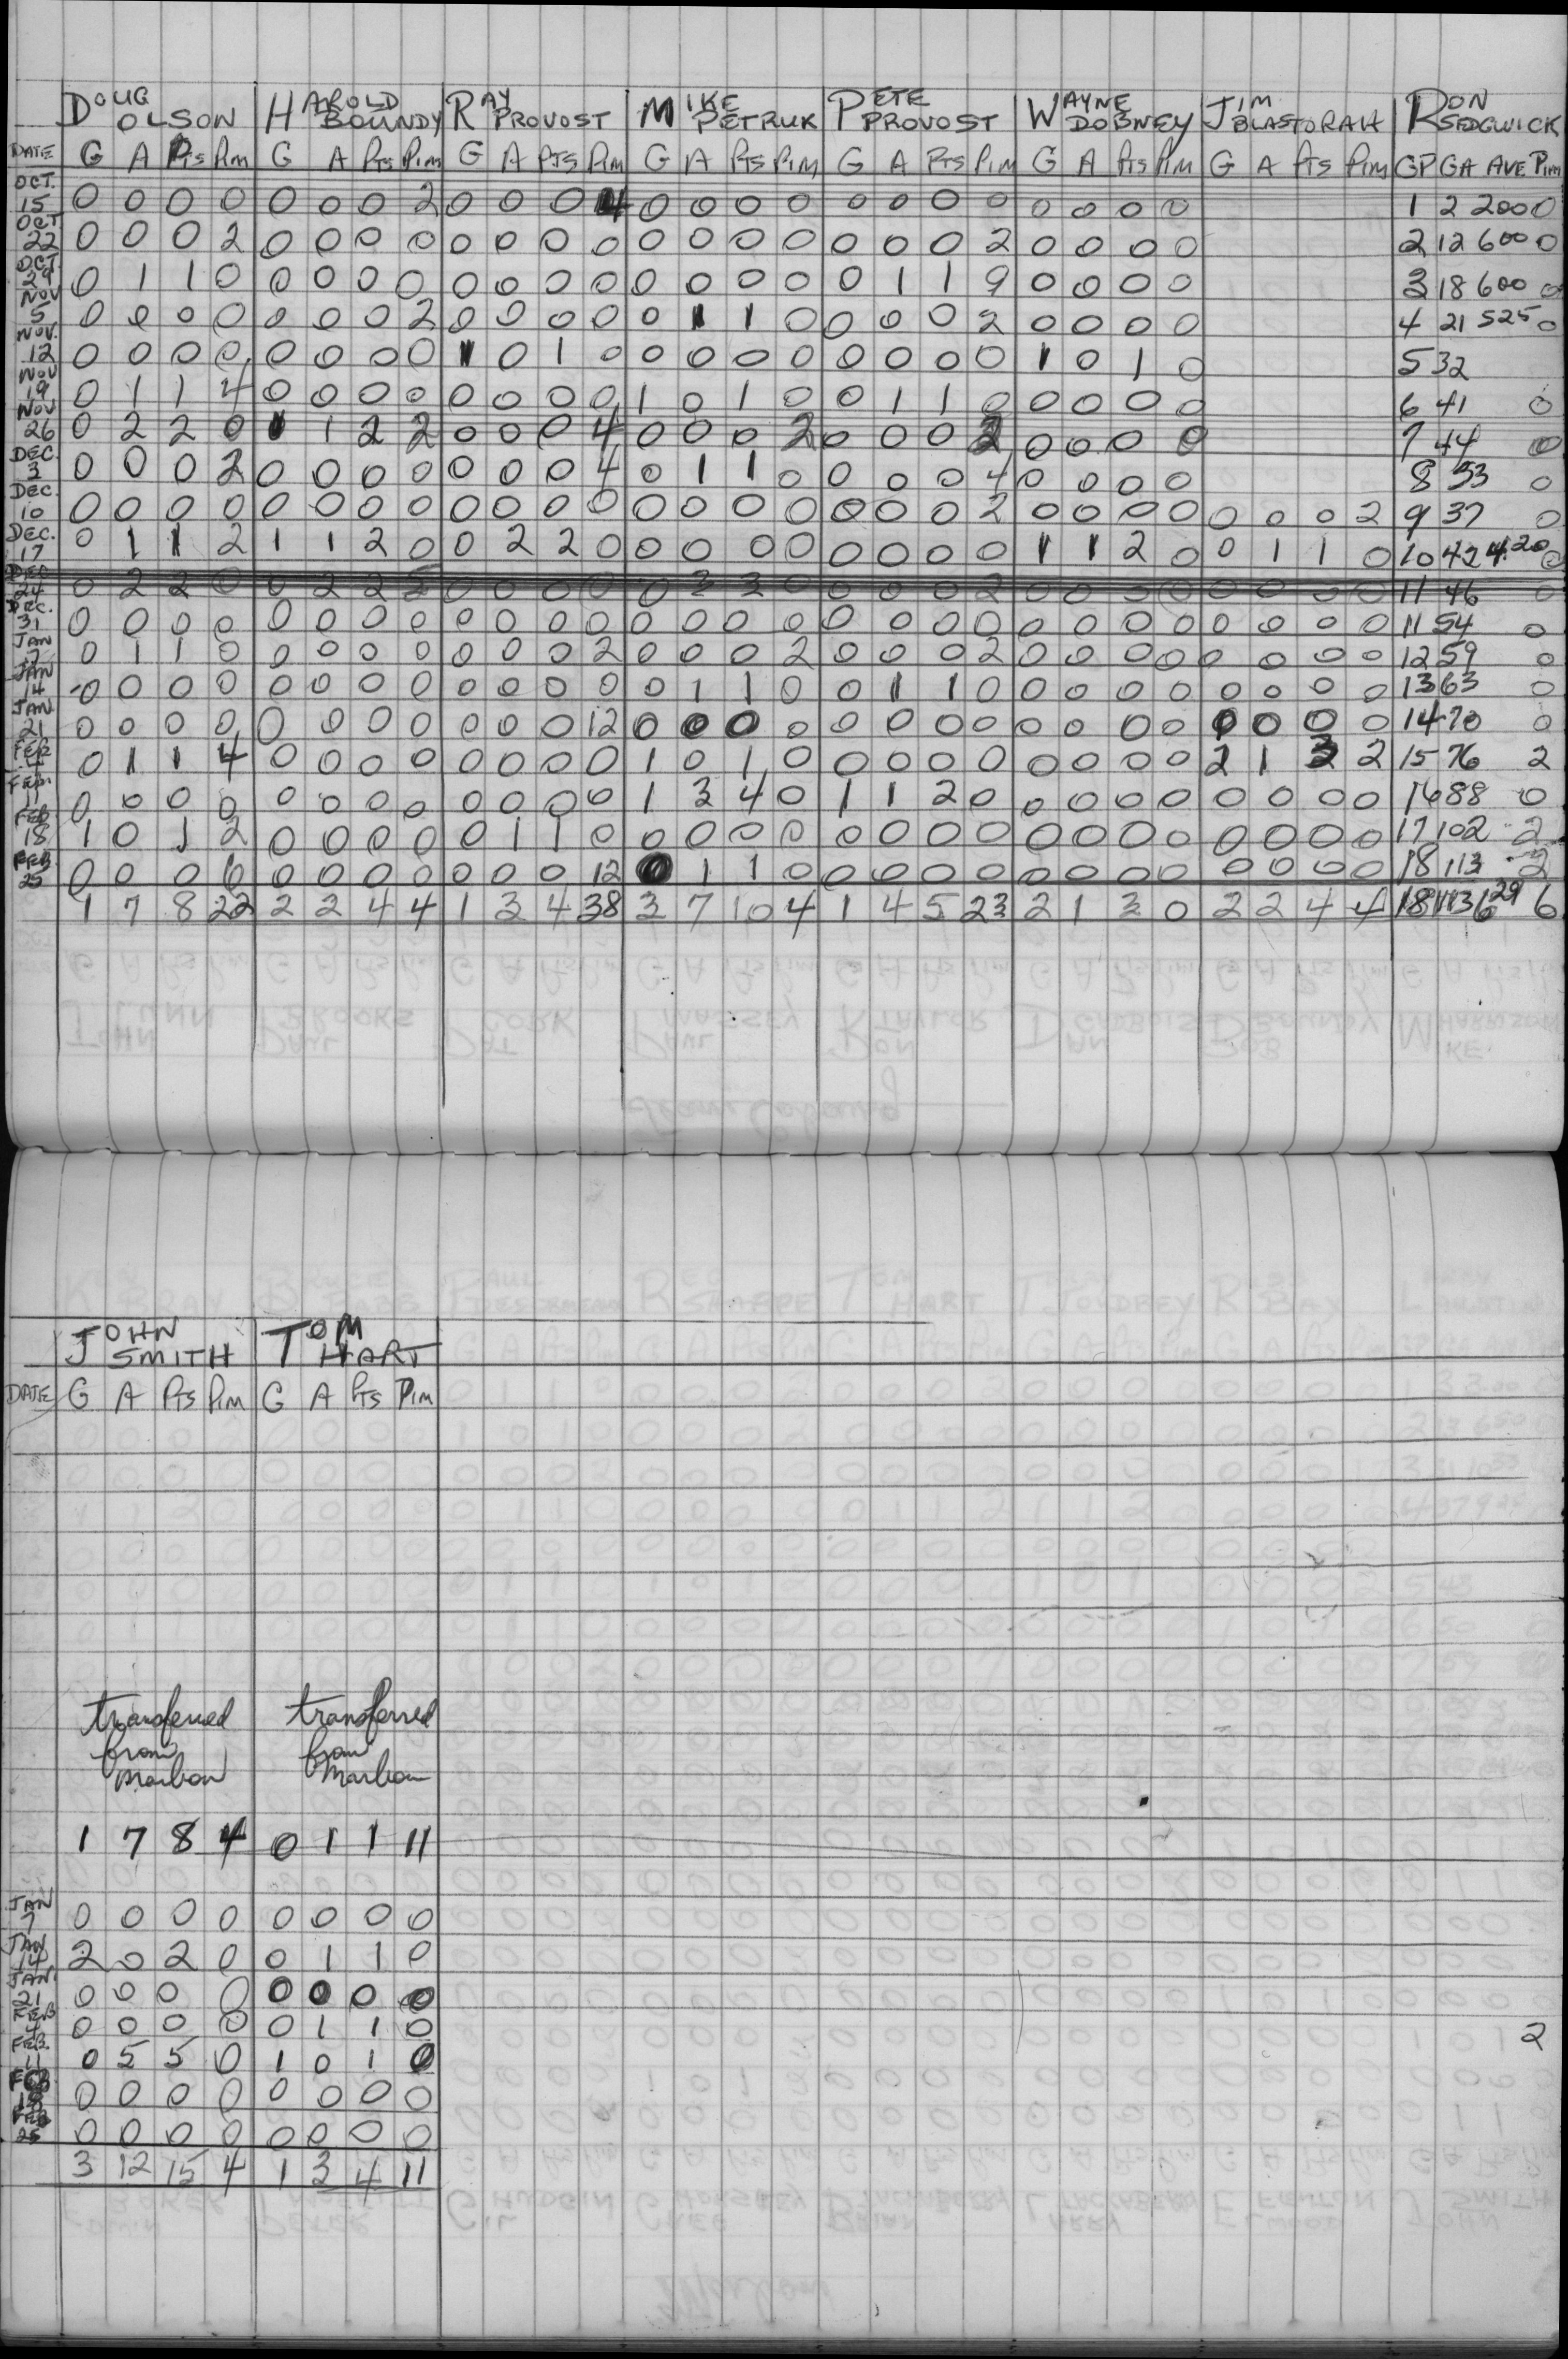 DOUG OLSON HAROLD BOUNDY RAY PROVOST MIKE PETRUK PETE PROVOST WAYNE DOBNEY JIM BLASTORAH RON SEDGWICK
DATE G A Pts Pim G A Pts Pim G A Pts Pim G A Pts Pim G A Pts Pim G A Pts Pim G A Pts Pim GP GA AVE Pim
OCT. 15 0 0 0 0 0 0 0 2 0 0 0 4 0 0 0 0 0 0 0 0 0 0 0 0 1 2 200 0
OCT 22 0 0 0 2 0 0 0 0 0 0 0 0 0 0 0 0 0 0 0 2 0 0 0 0 2 12 600 0
OCT 29 0 1 1 0 0 0 0 0 0 0 0 0 0 0 0 0 0 1 1 9 0 0 0 0 3 18 600 0
NOV 5 0 0 0 0 0 0 0 2 0 0 0 0 0 1 1 0 0 0 0 2 0 0 0 0 4 21 525 0
NOV. 12 0 0 0 0 0 0 0 0 1 0 1 0 0 0 0 0 0 0 0 0 1 0 1 0 5 32
NOV 19 0 1 1 4 0 0 0 0 0 0 0 0 1 0 1 0 0 1 1 0 0 0 0 0 6 41 0
NOV 26 0 2 2 0 1 1 2 2 0 0 0 4 0 0 0 2 0 0 0 2 0 0 0 0 7 44 0
DEC. 3 0 0 0 2 0 0 0 0 0 0 0 4 0 1 1 0 0 0 0 4 0 0 0 0 8 33 0
DEC. 10 0 0 0 0 0 0 0 0 0 0 0 0 0 0 0 0 0 0 0 2 0 0 0 0 0 0 0 2 9 37 0
DEC. 17 0 1 1 2 1 1 2 0 0 2 2 0 0 0 0 0 0 0 0 0 1 1 2 0 0 1 1 0 10 42 4.20 0
DEC 24 0 2 2 0 0 2 2 0 0 0 0 0 3 3 0 0 0 0 2 0 0 0 0 0 0 0 0 11 46 0
DEC. 31 0 0 0 0 0 0 0 0 0 0 0 0 0 0 0 0 0 0 0 0 0 0 0 0 0 0 0 0 11 54 0
JAN 7 0 1 1 0 0 0 0 0 0 0 0 2 0 0 0 2 0 0 0 2 0 0 0 0 0 0 0 0 12 59 0
JAN 14 0 0 0 0 0 0 0 0 0 0 0 0 0 1 1 0 0 1 1 0 0 0 0 0 0 0 0 0 13 63 0
JAN 21 0 0 0 0 0 0 0 0 0 0 0 12 0 0 0 0 0 0 0 0 0 0 0 0 0 0 0 0 14 70 0
FEB 4 0 1 1 4 0 0 0 0 0 0 0 0 1 0 1 0 0 0 0 0 0 0 0 0 2 1 3 2 15 76 2
FEB. 11 0 0 0 0 0 0 0 0 0 0 0 0 1 3 4 0 1 1 2 0 0 0 0 0 0 0 0 0 16 88 0
FEB 18 1 0 1 2 0 0 0 0 0 1 1 0 0 0 0 0 0 0 0 0 0 0 0 0 0 0 0 0 17 102 2
FEB 25 0 0 0 6 0 0 0 0 0 0 0 12 0 1 1 0 0 0 0 0 0 0 0 0 0 0 0 0 18 113 2
1 7 8 22 2 2 4 4 1 3 4 38 3 7 10 4 1 4 5 23 2 1 3 0 2 2 4 4 18 113 6 29 6
JOHN SMITH TOM HART
DATE G A Pts Pim G A Pts Pim
transferred from Marbon transferred from Marbon
1 7 8 4 0 1 1 11
JAN 7 0 0 0 0 0 0 0 0
JAN 14 2 0 2 0 0 1 1 0
JAN 21 0 0 0 0 0 0 0 0
FEB 4 0 0 0 0 0 1 1 0
2
FEB. 11 0 5 5 0 1 0 1 0
FEB 18 0 0 0 0 0 0 0 0
FEB 25 0 0 0 0 0 0 0 0
3 12 15 4 1 3 4 11